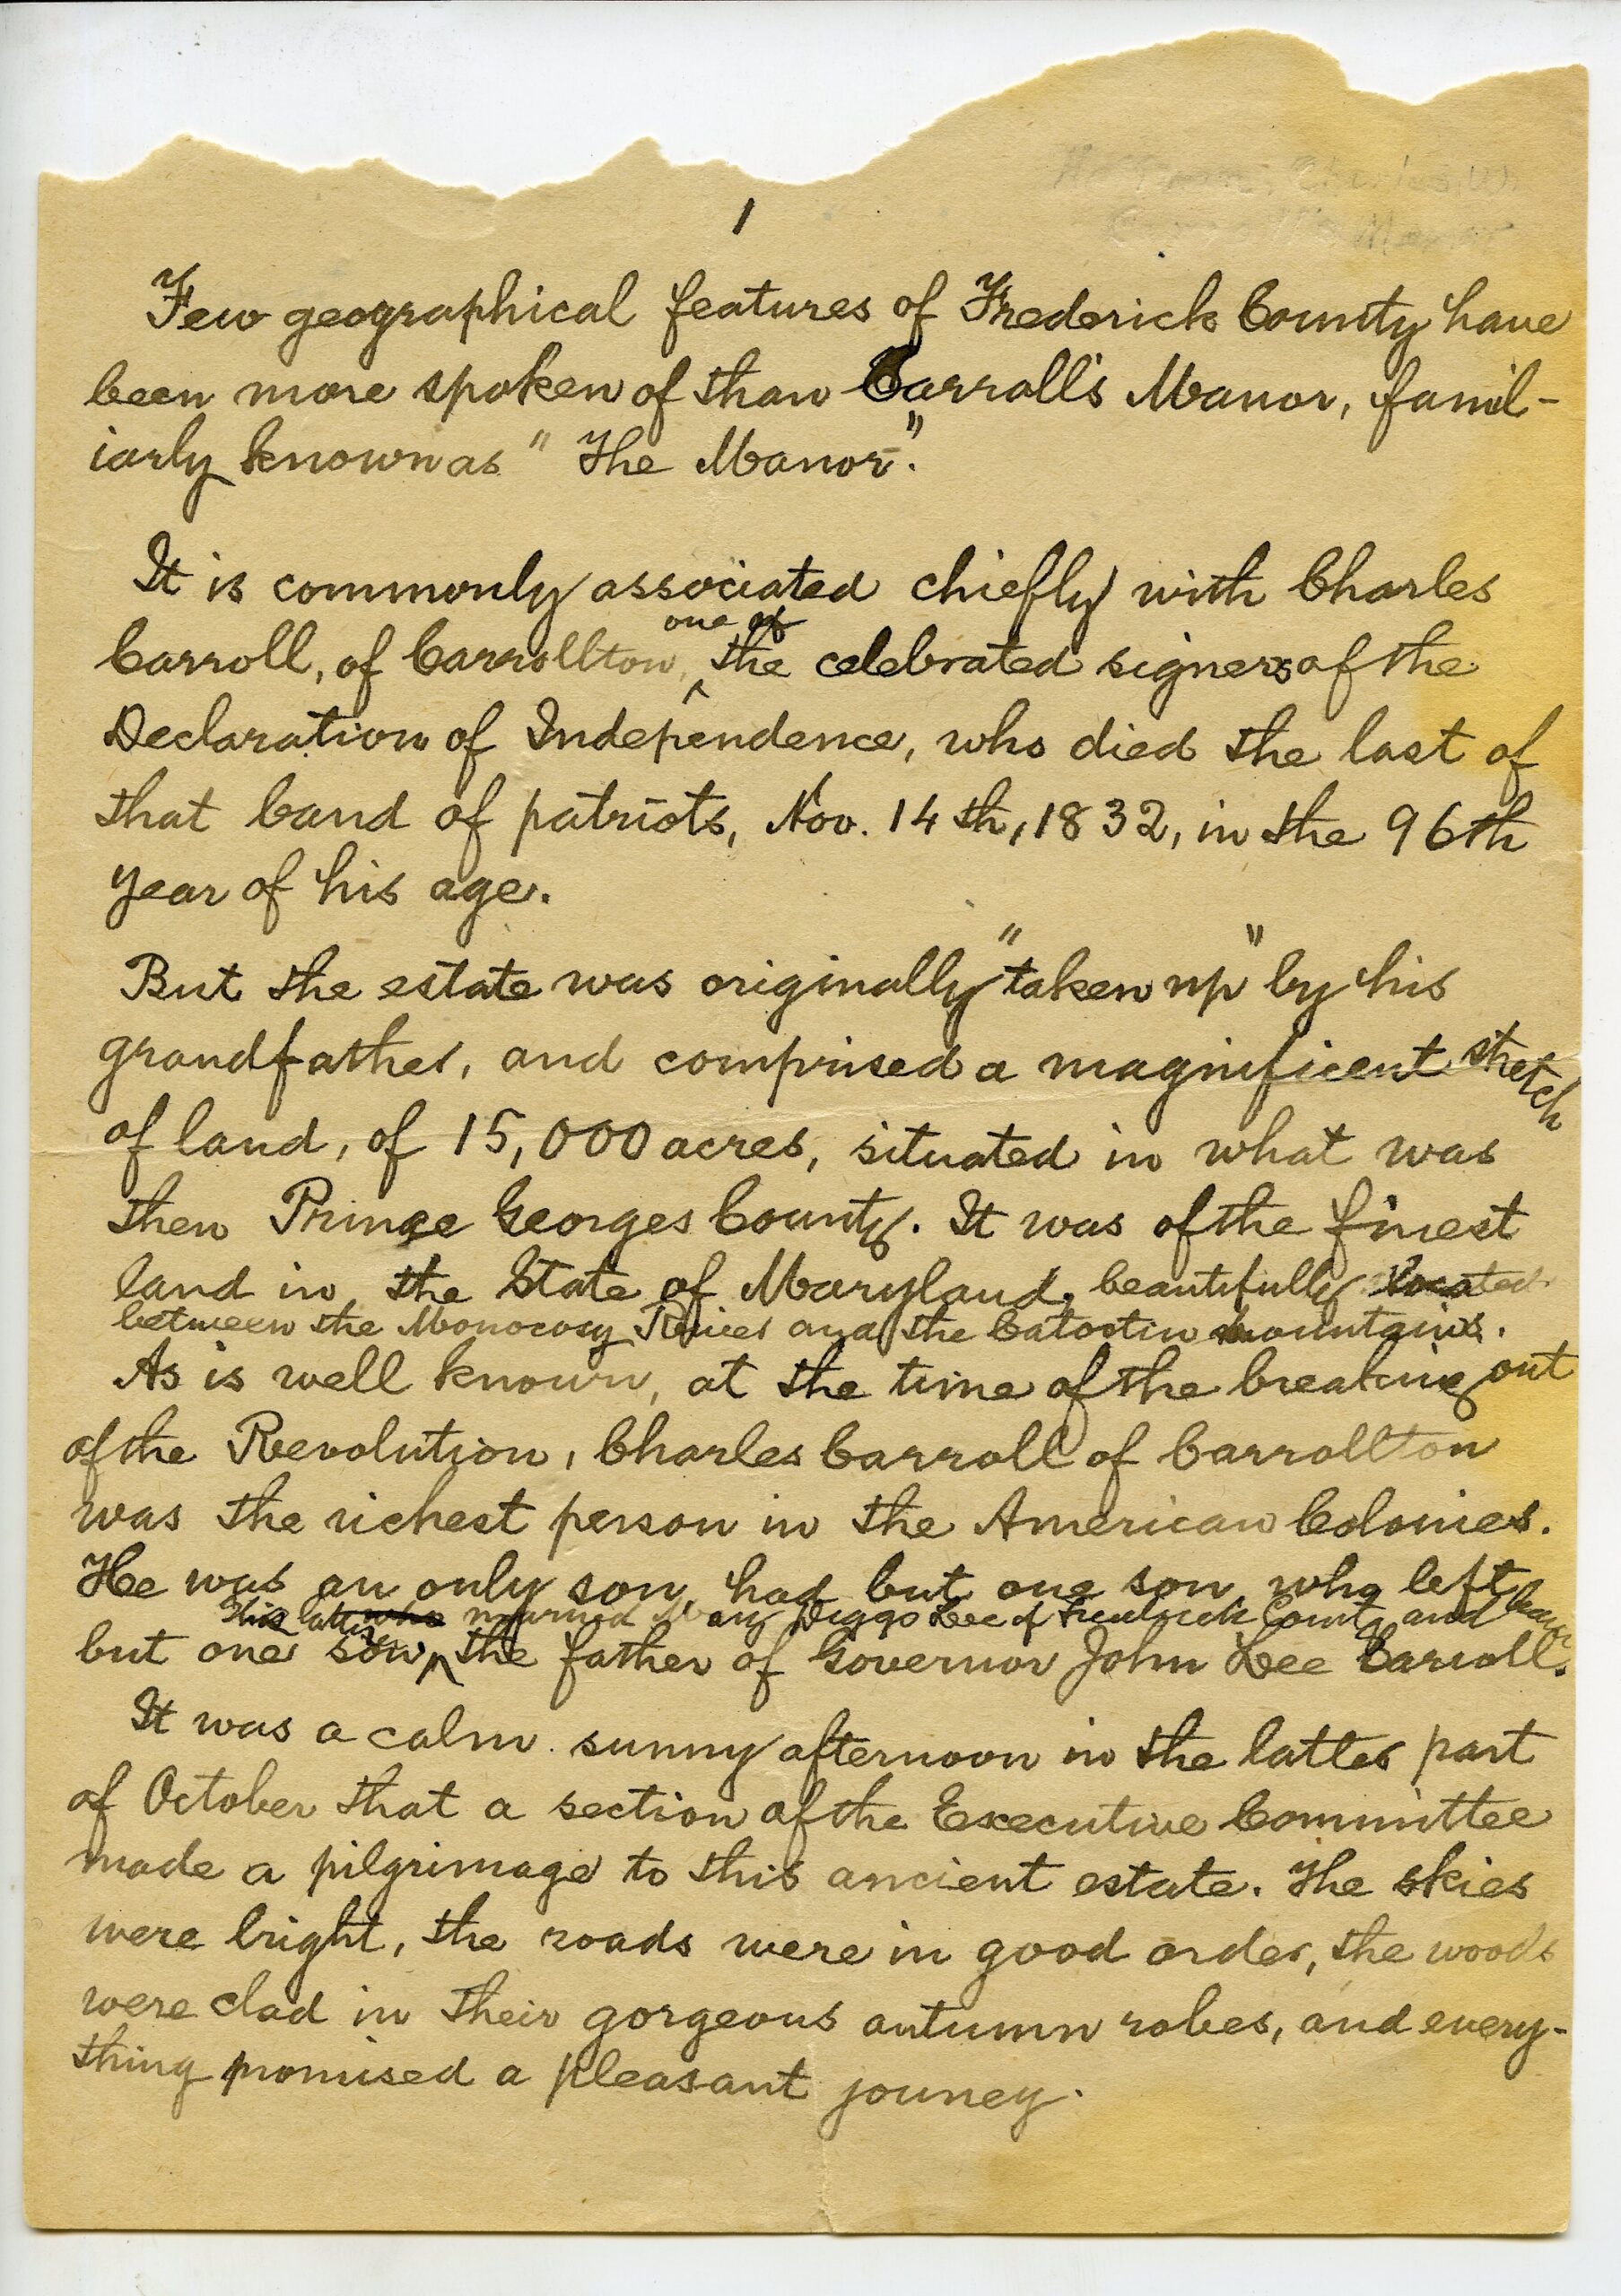 Charles W.
Manor
1
Few geographical features of Frederick County have
been more spoken of than Carroll's Manor, famil-
iarly known as "The Manor".
It is commonly associated chiefly with Charles
one of
Carroll, of Carrollton, ^ the celebrated signers of the
Declaration of Independence, who died the last of
that band of patriots, Nov. 14th, 1832, in the 96th
year of his age.
But the estate was originally "taken up" by his
grandfather, and comprised a magnificent stretch
of land, of 15,000 acres, situated in what was
then Prince Georges County. It was of the finest
land in the State of Maryland, beautifully located
between the Monococy River and the Catoctin mountains.
As is well known, at the time of the breaking out
of the Revolution, Charles Carroll of Carrollton
was the richest person in the American Colonies.
He was an only son, had but one son, who left
This latter who married Mary Diggs Lee of Frederick County and became
but one son, ^ the father of Governor John Lee Carroll.
It was a calm sunny afternoon in the latter part
of October that a section of the Executive Committee
made a pilgrimage to this ancient estate. The skies
were bright, the roads were in good order, the woods
were clad in their gorgeous autumn robes, and every-
thing promised a pleasant jouney.